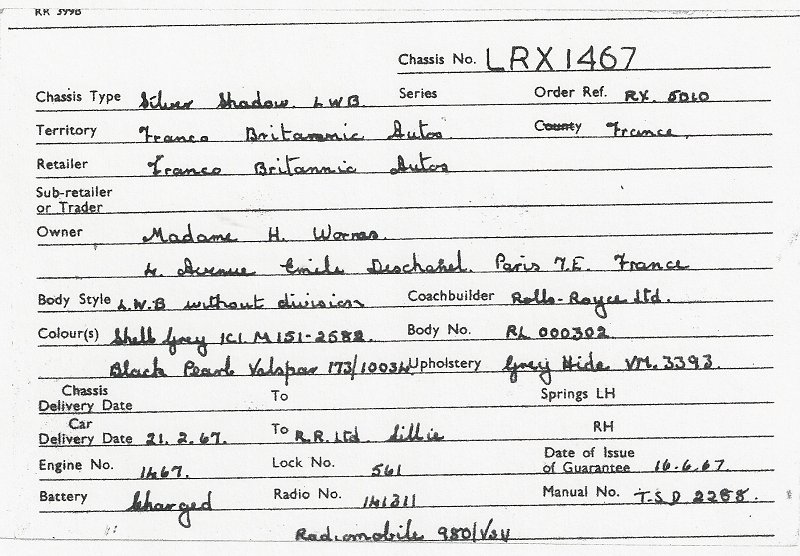 RR 399B
Chassis No. LRX1467
Chassis Type Silver Shadow. L.W.B. Series Order Ref. RX. 5010
Territory Franco Britannic Autos. County France.
Retailer Franco Britannic Autos
Sub-retailer
or Trader
Owner Madame H. Worms.
4. Avenue Emile Deschanel. Paris 7.E. France
Body Style L.W.B without division Coachbuilder Rolls-Royce Ltd.
Colour(s) Shell Grey ICI. M151-2682. Body No. RL 000302
Black Pearl Valspar 173/10034 Upholstery Grey Hide VM. 3393.
Chassis
Delivery Date To Springs LH
Car
Delivery Date 21. 2. 67. To R.R. Ltd. Lillie RH
Engine No. 1467. Lock No. 561 Date of Issue
of Guarantee 16.6.67.
Battery Charged Radio No. 141311 Manual No. T.S.D 2288.
Radiomobile 980/